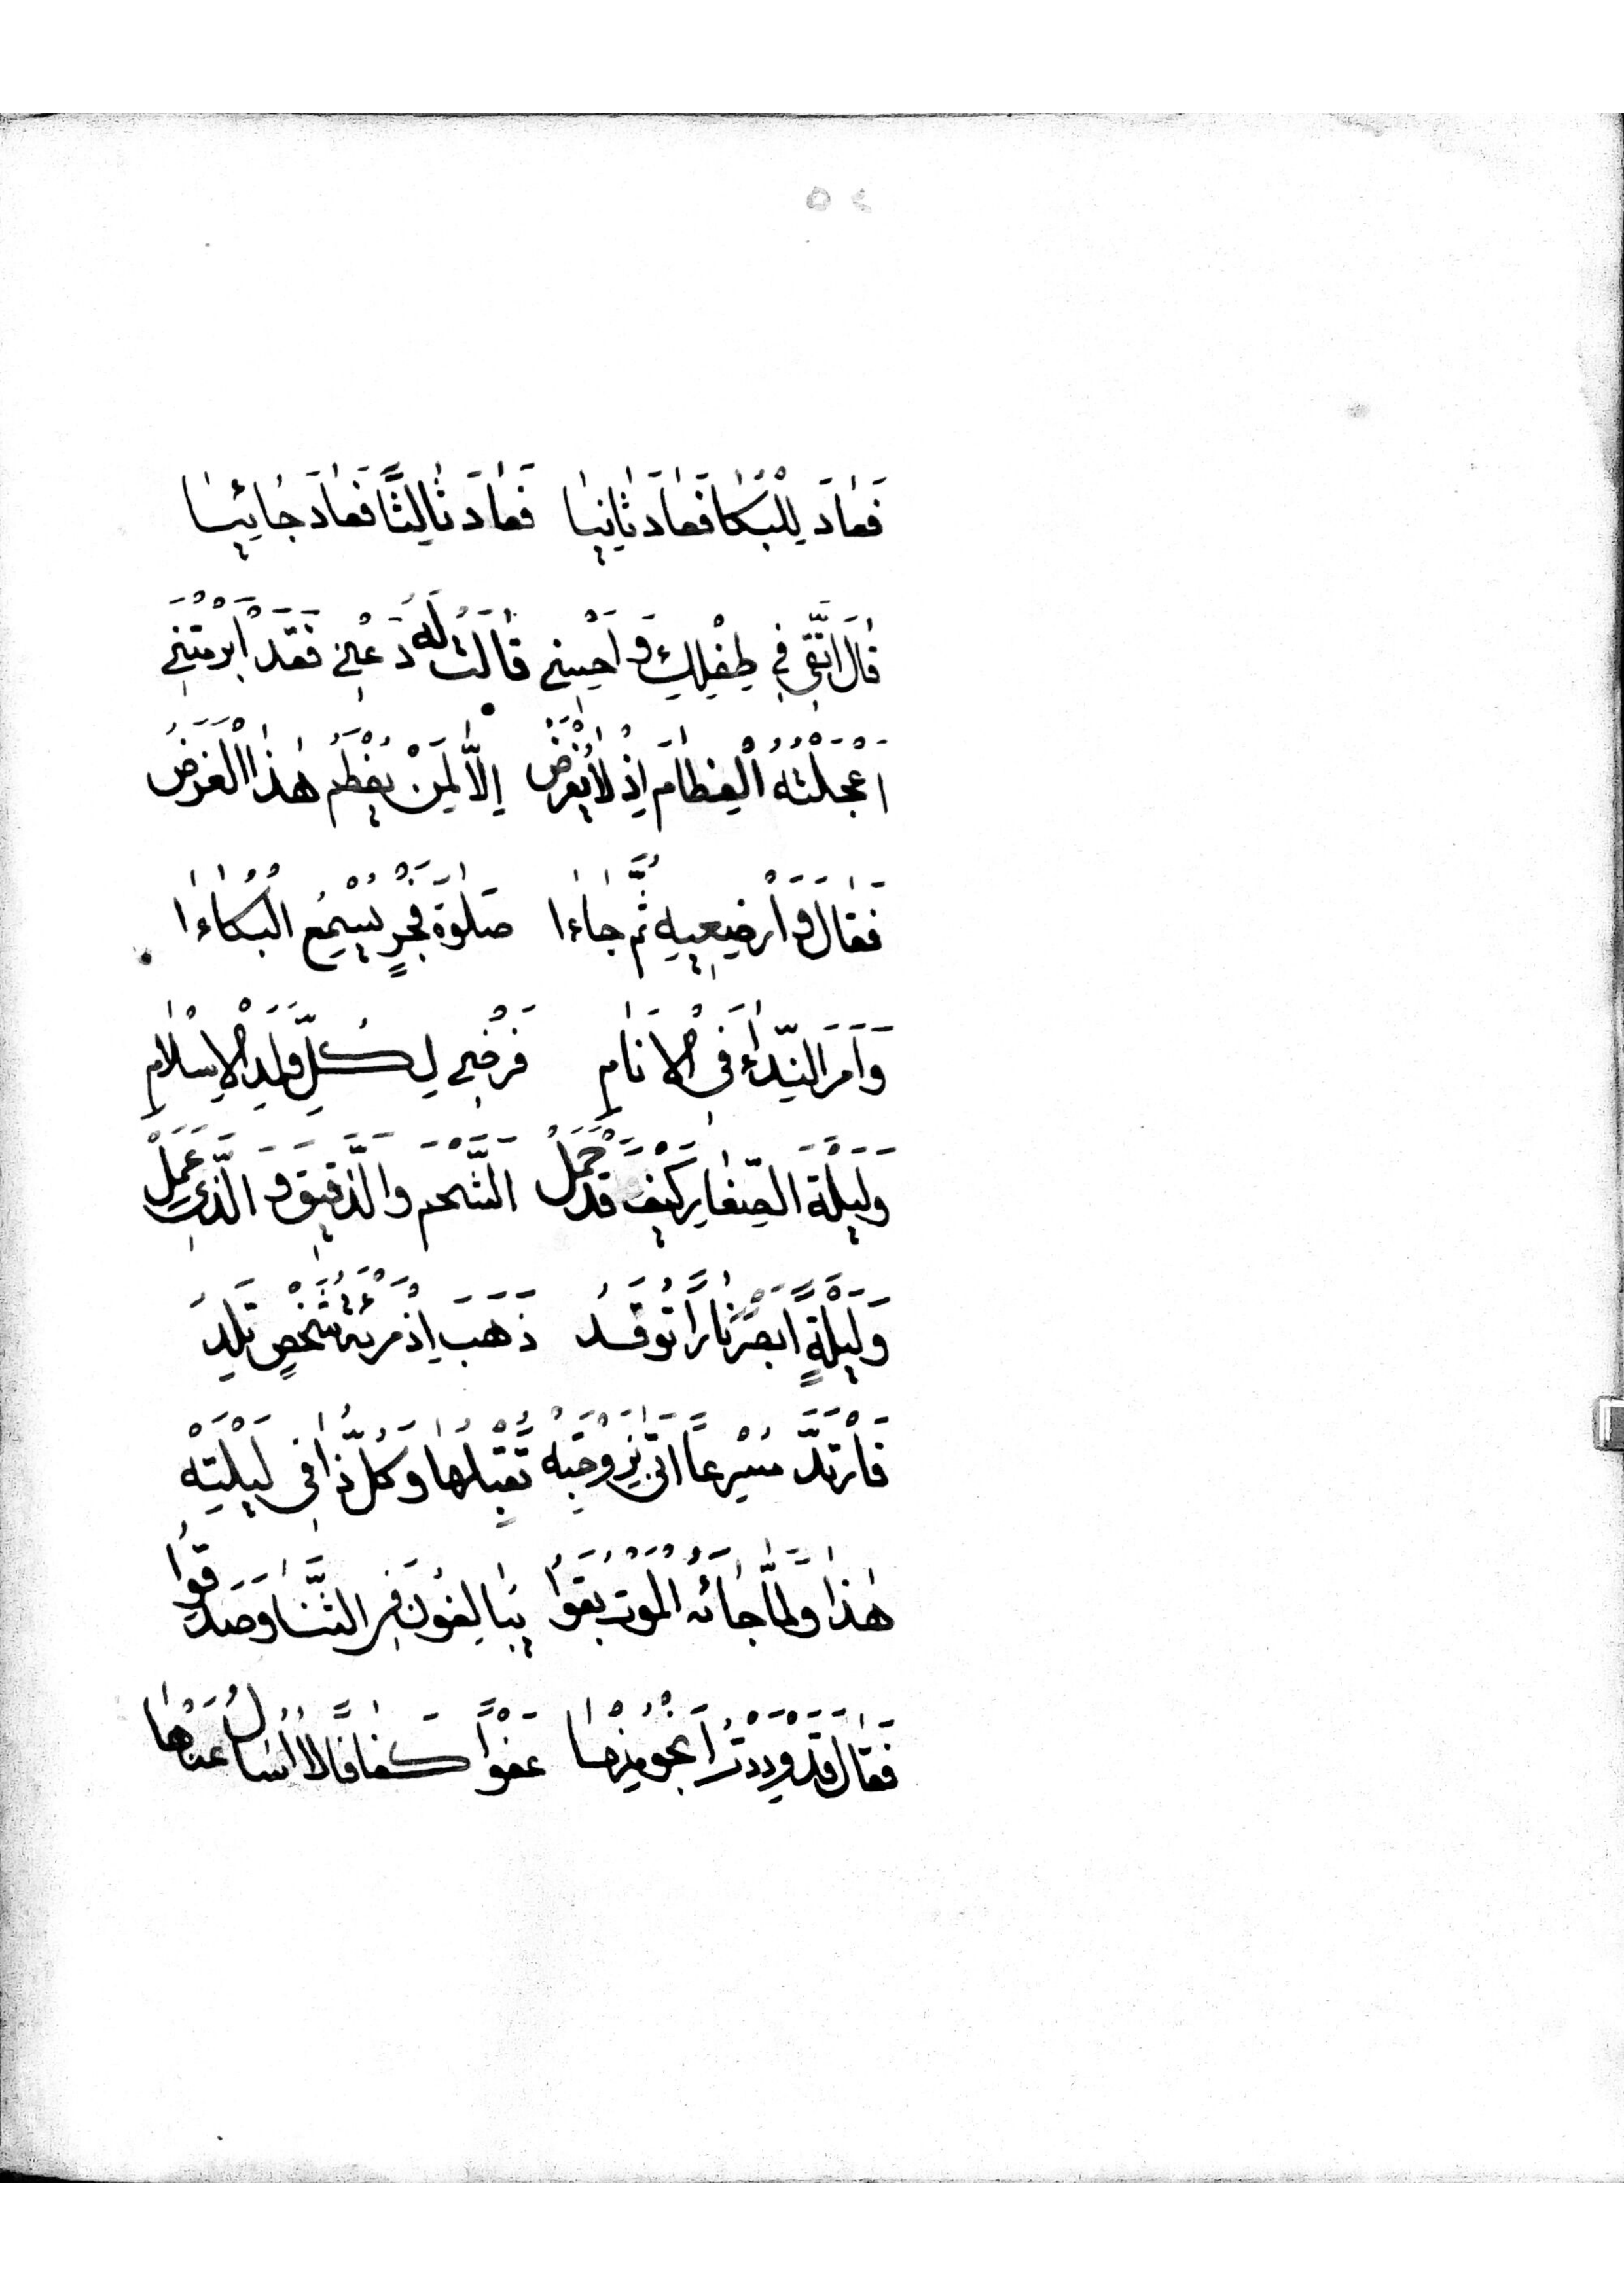 فَعَادَ لِلْبُكَا فَعَادَ ثَانِيَا فَعَادَ ثَالِثًا فَعَادَ جَائِيَا
قَالَ اتَّقِي فِي طِفْلِكِ وَاَحْسِنِي قَالَتْ لَهُ دَعْنِي فَقَدْ اَبْرَمْتَنِي
اَعْجَلْتُهُ الْفِطَامَ اِذْ لَا يُفْرَضُ اِلَّا لِمَنْ يُفْطَمُ هٰذَا الْغَرَضُ
فَقَالَ وَاَرْضِعِيهِ ثُمَّ جَاءَا صَلٰوةَ فَجْرٍ يُسْمِعُ الْبُكَاءَا
وَاَمَرَ النِّدَاءَ فِي الْاَنَامِ فَرْضِي لِكُلِّ وَلَدِ الْاِسْلَامِ
وَلَيْلَةَ الصِّغَارِ كَيْفَ قَدْ حَمَلْ اَلشَّحْمَ وَالدَّقِيقَ وَالَّذِي عَمِلْ
وَلَيْلَةٍ اَبْصَرَ نَارًا تُوقَدُ ذَهَبَ اِذْ شَخْصٍ تَلِدُ
فَارْتَدَّ مُسْرِعًا اَتٰى بِزَوْجَتِهْ تَقْبِلُهَا وَكُلُّ ذَا فِي لَيْلَتِهْ
هٰذَا وَلَمَّا جَائَهُ الْمَوْتُ بَقَوْا يُبَالِغُونَ فِي الثَّنَا وَصَدَقُوا
فَقَالَ قَدْ وَدِدْتُ اَنْجُو مِنْهَا عَفْوًا كَفَافًا لَا اُسْاَلُ عَنْهَا